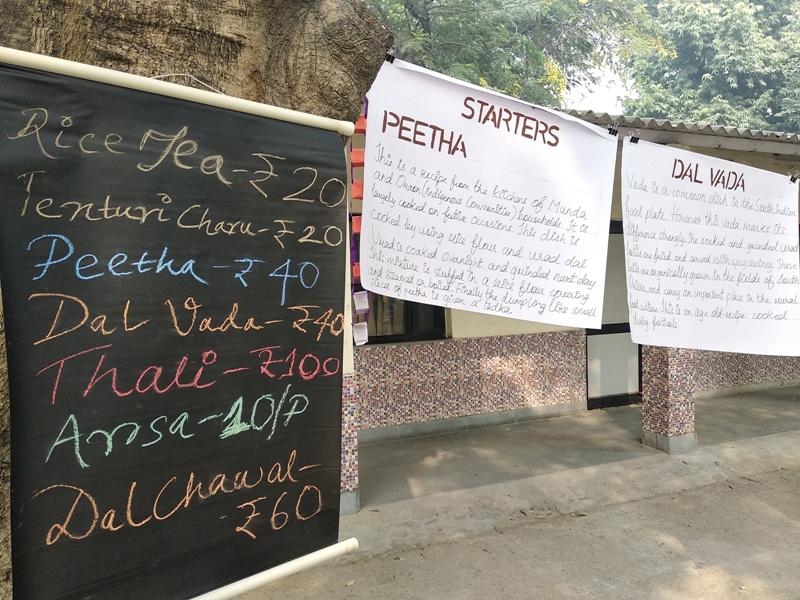 Rice Tea - ₹20
Tenturi Charu - ₹20
Peetha - ₹40
Dal Vada - ₹40
Thali - ₹100
Arrsa - 10/P
Dal Chawal -
- ₹60
STARTERS
PEETHA
This is a recipe from the kitchens of Munda
and Oraon (Indigenous Communities) households. It is
largely cooked on festive occasions. This dish is
cooked by using rice flour and urad dal
Urad is soaked overnight and grinded next day
the mixture is stuffed in a rice flour covering
and steamed or boiled. Finally the dumpling like small
pieces of peetha is given a tadka
DAL VADA
Vada is a common dish in the South Indian
food plate. However this vada marks its
difference strongly. The soaked and grinded urad
are fried and served with spicy chutney. These
are organically grown in the fields of South
and carry an important place in the
food culture. This is an age old recipe cooked
during festivals.